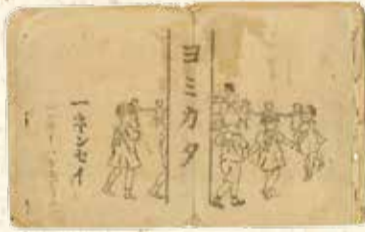 ヨミカタ
一ネンセイ